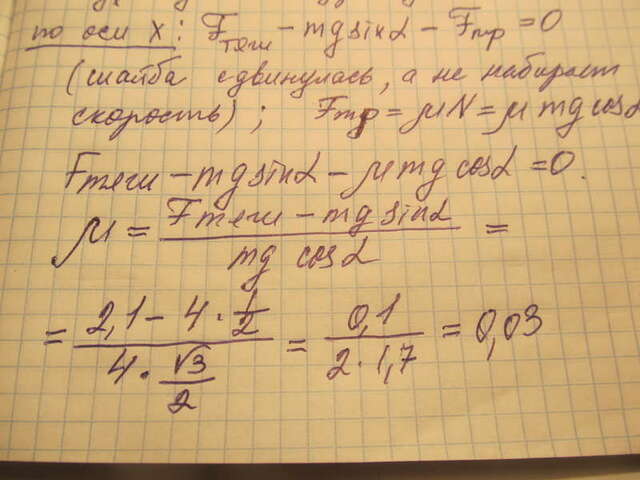 по оси X: Fтяги - mg sin α - Fтр = 0
(шайба сдвинулась, а не набирает
скорость); Fтр = μN = μ mg cos α
Fтяги - mg sin α - μ mg cos α = 0.
μ = (Fтяги - mg sin α) / (mg cos α) =
= (2,1 - 4 · 1/2) / (4 · √3/2) = 0,1 / (2 · 1,7) = 0,03